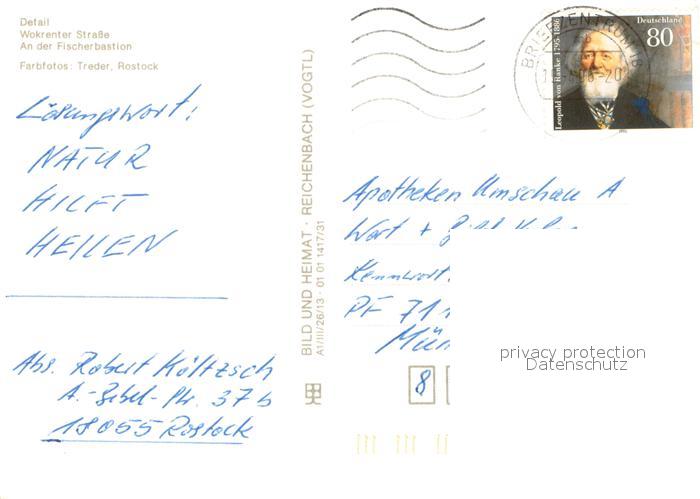 Detail
Wokrenter Straße
An der Fischerbastion
Farbfotos: Treder, Rostock
Lösungswort:
NATUR
HILFT
HEILEN
Abs. Robert Költzsch
A.-Bebel-Str. 37b
18055 Rostock
BILD UND HEIMAT · REICHENBACH (VOGTL)
A1/III/26/13 · 01 01 1417/31
BRIEFZENTRUM 18
Deutschland
80
Leopold von Ranke 1795-1886
1995
Apotheken Umschau A
Wort +
Kennwort.
PF 711
Mün
8
privacy protection
Datenschutz